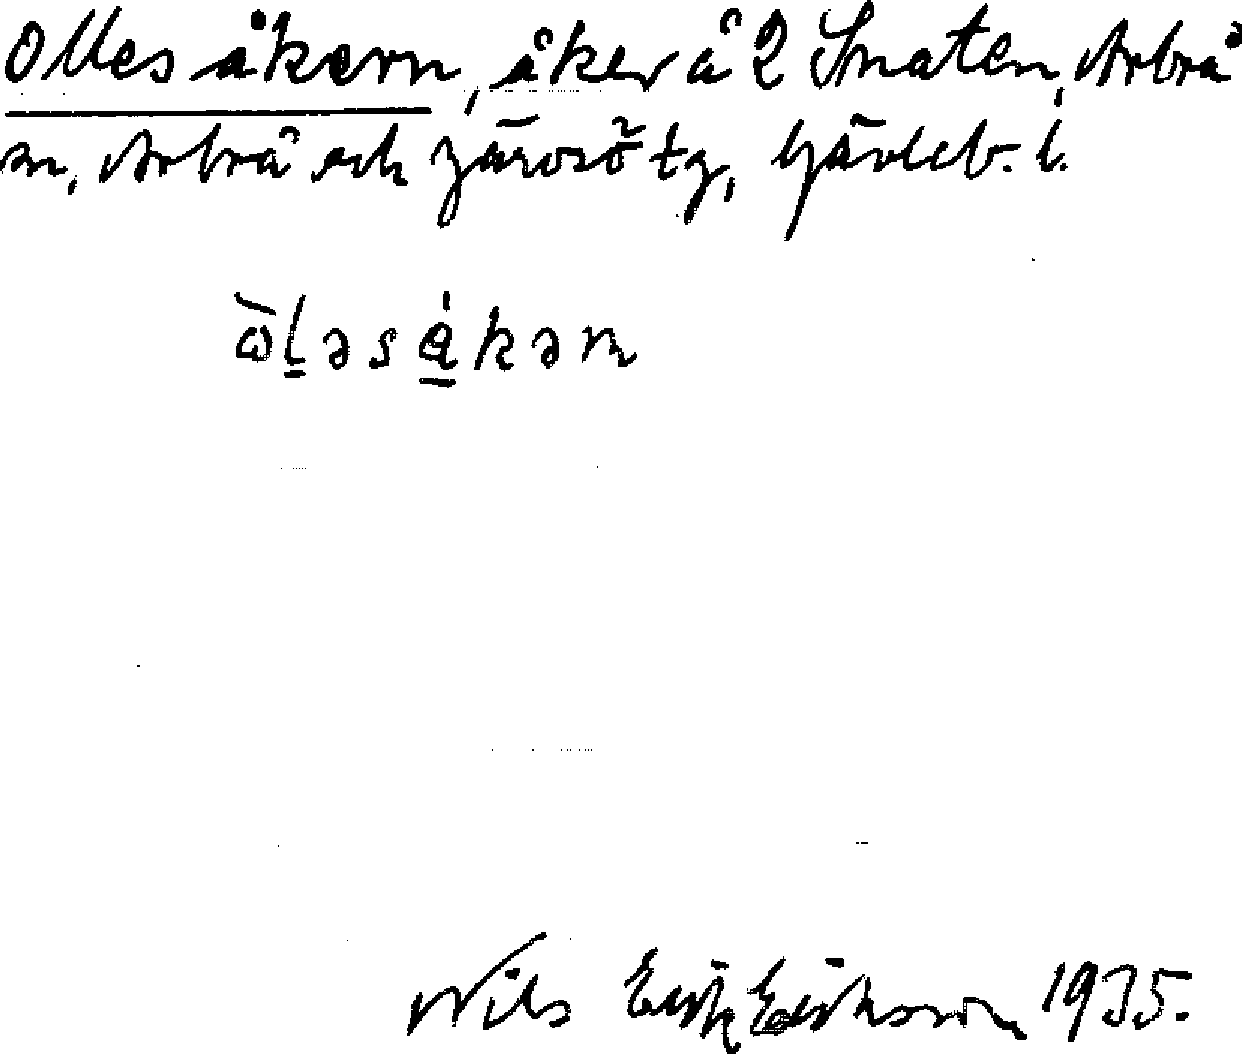 Olles åkern, åker å 2 Snaten, Arbrå
sn, Arbrå och Järvsö tg, Gävleb. l.
ὼl̲əsá̲kəṇ
Nils Erik Eriksson 1935.